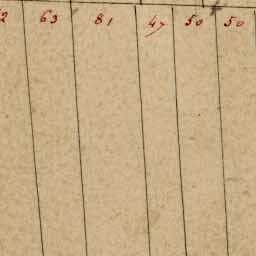 2 63 81 47 50 50